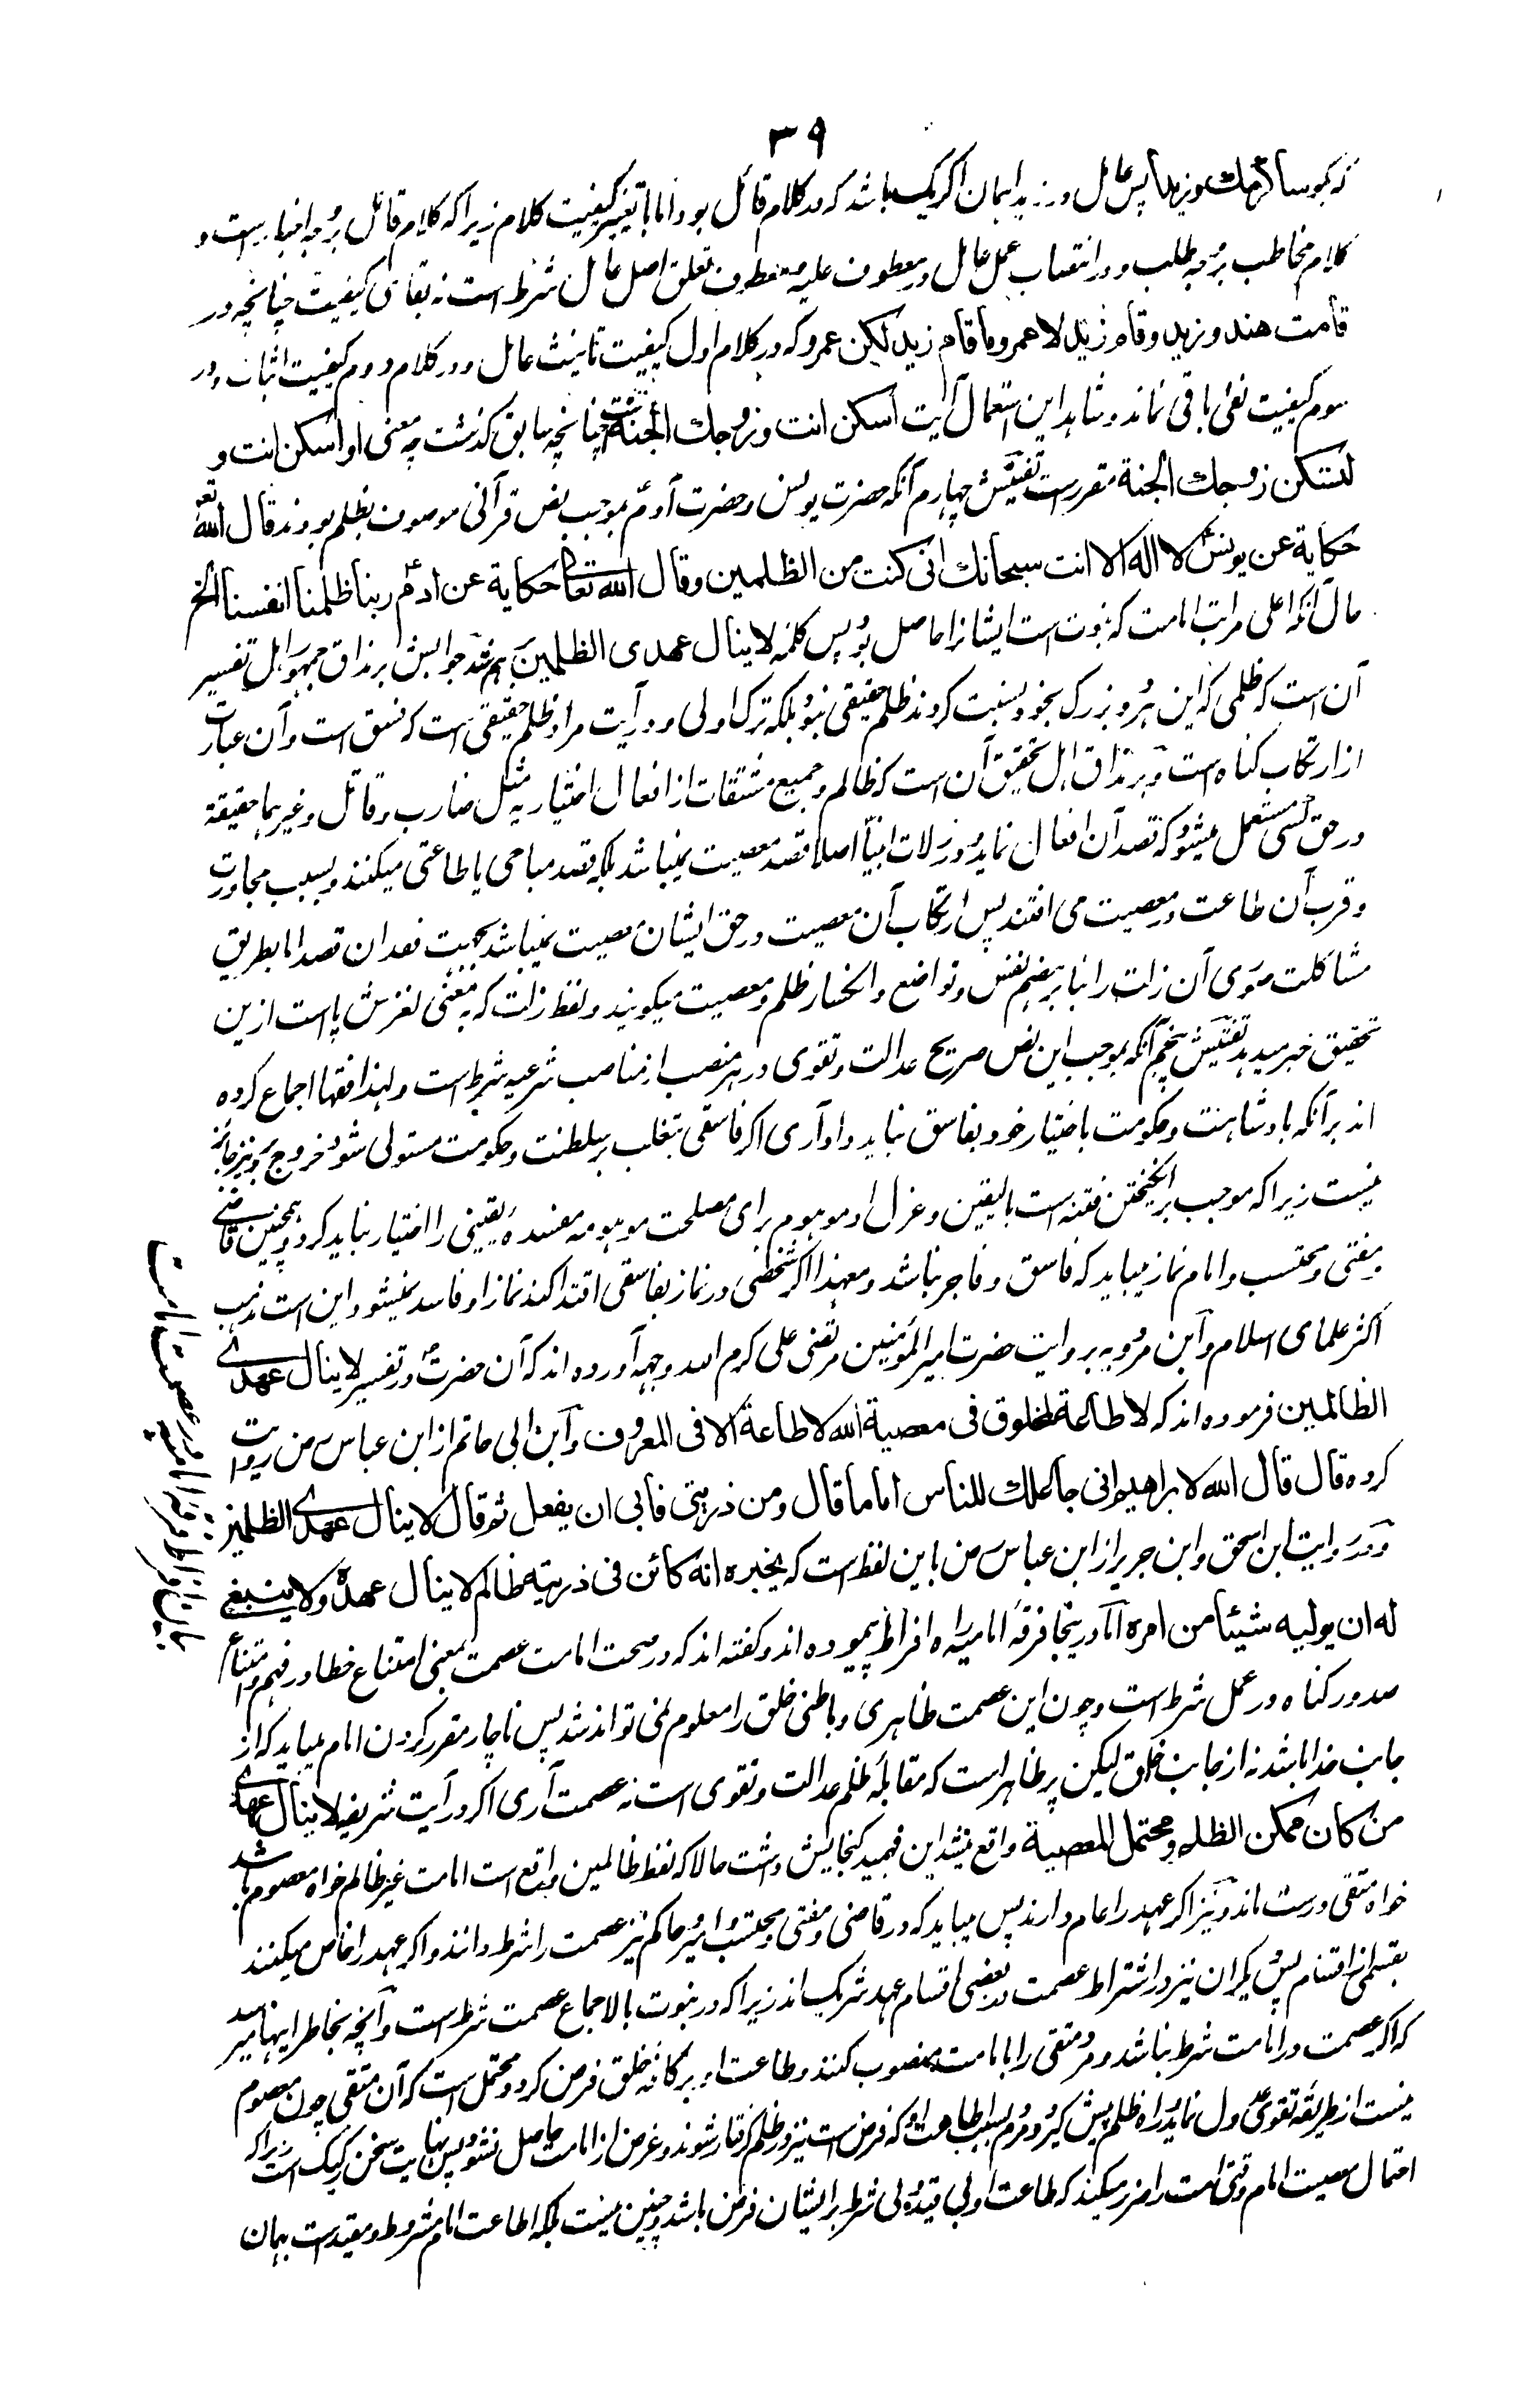 ۳۹
پس عامل در زید ایمان اگر یک باشد که در کلام قائل بود اما با تغیر کیفیت کلام زیرا که کلام قائل بر وجه اخبار است و
کلام مخاطب بر وجه طلب و در انتصاب عمل عامل در معطوف علیه و معطوف تعلق اصل عامل شرط است نه بقای کیفیت چنانچه در
قامت هند و زید و قام زید لا عمرو ما قام زید لکن عمرو که در کلام اول کیفیت تانیث عامل و در کلام دوم کیفیت اثبات و در
سوم کیفیت نفی باقی نماند و شاهد این استعمال آیت اسکن انت و زوجك الجنة است چنانچه سابق گذشت چه معنی او اسکن انت و
لتسکن زوجك الجنة مقرر است تفتیش چهارم آنکه حضرت یونس و حضرت آدم بموجب نص قرآنی موصوف بظلم بودند قال الله تعه
حکایة عن یونس لا اله الا انت سبحانك انی کنت من الظلمین وقال الله تعا حکایة عن ادم ربنا ظلمنا انفسنا الخ
حال آنکه اعلی مراتب امامت که نبوت است ایشانرا حاصل بود پس کلمه لا ینال عهدی الظلمین بهم نشد جوابش بر مذاق جمهور اهل تفسیر
آن است که ظلمی که این هر دو بزرگ بخود نسبت کردند ظلم حقیقی نبود بلکه ترک اولی و در آیت مراد ظلم حقیقی است که فسق است و آن عبارت
از ارتکاب گناه است و بر مذاق اهل تحقیق آن است که ظالم و جمیع مشتقات از افعال اختیاریه مثل ضارب و قاتل و غیرهما حقیقة
در حق کسی مستعمل میشود که قصد آن افعال نماید و در زلات انبیا اصلا قصد معصیت نمیباشد بلکه قصد مباحی یا طاعتی میکنند و بسبب مجاورت
و قرب آن طاعت در معصیت می افتند پس ارتکاب آن معصیت در حق ایشان معصیت نمیباشد بجهت فقدان قصد اما بطریق
مشاکلت صوری آن زلت را بنا بر هضم نفس و تواضع و انکسار ظلم و معصیت میگویند و لفظ زلت که بمعنی لغزش پا است ازین
تحقیق خبر میدهد تفتیش پنجم آنکه بموجب این نص صریح عدالت و تقوی در هر منصب از مناصب شرعیه شرط است و لهذا فقها اجماع کرده
اند بر آنکه بادشاهت و حکومت باختیار خود بفاسق نباید داد آری اگر فاسقی بتغلب بر سلطنت و حکومت مستولی شود خروج برو نیز جائز
نیست زیرا که موجب برانگیختن فتنه است بالیقین و عزل او موهوم برای مصلحت موهومه مفسده یقینی را اختیار نباید کرد و همچنین قاضی
و مفتی و محتسب و امام نماز میباید که فاسق و فاجر نباشد و معهذا اگر شخصی در نماز بفاسقی اقتدا کند نماز او فاسد نمیشود و این است مذهب
اکثر علمای اسلام و ابن مردویه بروایت حضرت امیر المومنین مرتضی علی کرم الله وجهه آورده اند که آن حضرت در تفسیر لا ینال عهدی
الظالمین فرموده اند که لا طاعة لمخلوق فی معصیة الله لا طاعة الا فی المعروف و ابن ابی حاتم از ابن عباس رض روایت
کرده قال قال الله لابراهیم انی جاعلك للناس اماما قال ومن ذریتی فابی ان یفعل ثم قال لا ینال عهدی الظلمین
و در روایت ابن اسحق و ابن جریر از ابن عباس رض باین لفظ است که یخبره انه کائن فی ذریته ظالم لا ینال عهده ولا ینبغی
له ان یولیه شیئا من امره اما در ینجا فرقه امامیه راه افراط پیموده اند و گفته اند که در صحت امامت عصمت بمعنی امتناع خطا در فهم و امتناع
صدور گناه در عمل شرط است و چون این عصمت ظاهری و باطنی خلق را معلوم نمی تواند شد پس ناچار مقرر کردن امام میباید که از
جانب خدا باشد نه از جانب خلق لیکن پر ظاهر است که مقابل ظلم عدالت و تقوی است نه عصمت آری اگر در آیت شریفه لا ینال عهدی
من کان ممکن الظلم و محتمل المعصیة واقع میشد این فهمید گنجایش داشت حالا که لفظ ظالمین واقع است امامت غیر ظالم خواه معصوم باشد
خواه متقی درست ماند و نیز اگر عهد را عام دارند پس میباید که در قاضی و مفتی و محتسب و امیر و حاکم نیز عصمت را شرط دانند و اگر عهد را خاص میکنند
بقسمی از اقسام پس دیگران نیز در اشتراط عصمت در بعضی اقسام عهد شریک اند زیرا که در نبوت بالاجماع عصمت شرط است و آنچه بخاطر اینها میرسد
که اگر عصمت در امامت شرط نباشد و مرد متقی را بامامت منصوب کنند و طاعت او بر کافه خلق فرض کرد و محتمل است که آن متقی چون معصوم
نیست از طریقه تقوی عدول نماید و راه ظلم پیش گیرد و مردم بسبب اطاعت او که فرض است نیز در ظلم گرفتار شوند و غرض از امامت حاصل نشود پس نهایت سخن رکیک است زیرا که
احتمال معصیت امام وقتی امت را ضرر میکند که طاعت او بی قید و بی شرط بر ایشان فرض باشد و چنین نیست بلکه اطاعت امام مشروط و مقید است بهمان
بیان افراط فرقه امامیه در عصمت امامت